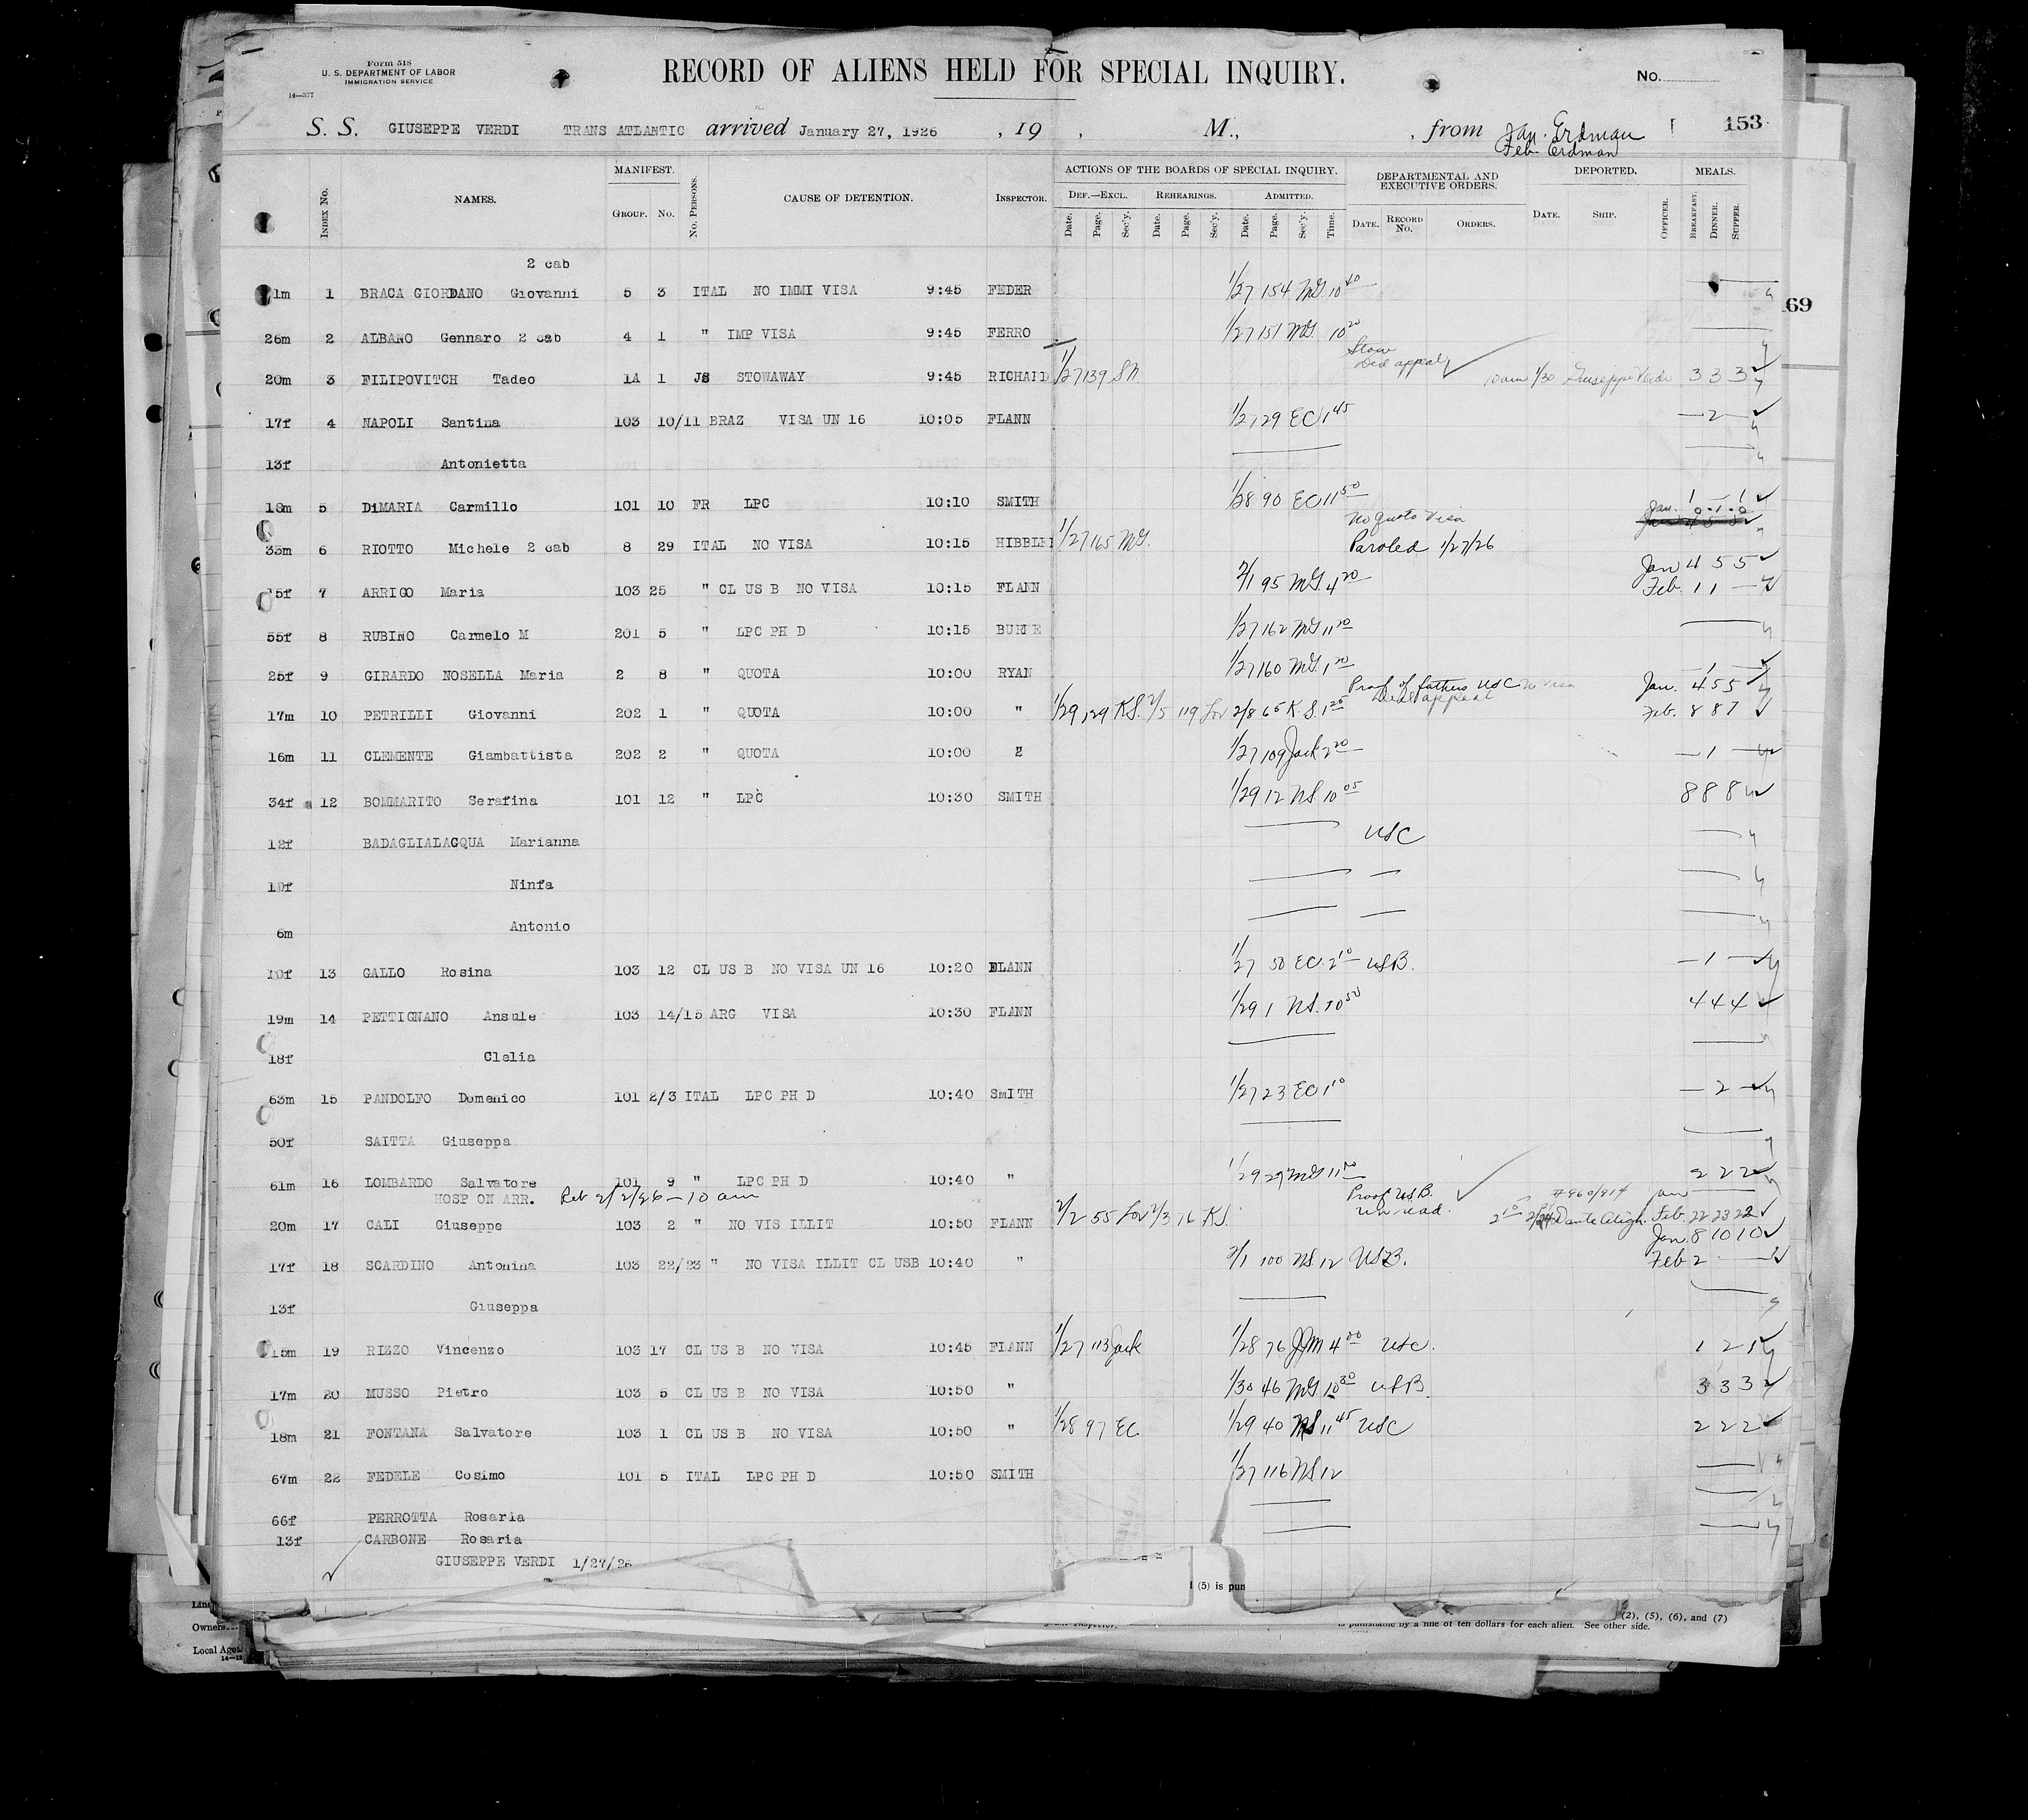 Form 518
U. S. DEPARTMENT OF LABOR
IMMIGRATION SERVICE
14—377
RECORD OF ALIENS HELD FOR SPECIAL INQUIRY.
No.
S. S. GIUSEPPE VERDI TRANS ATLANTIC arrived January 27, 1926 , 19 , M., , from Jan. Erdman 153
Feb. Erdman
INDEX No. NAMES. MANIFEST. GROUP. No. No. PERSONS. CAUSE OF DETENTION. INSPECTOR. ACTIONS OF THE BOARDS OF SPECIAL INQUIRY. DEPARTMENTAL AND EXECUTIVE ORDERS. DEPORTED. MEALS.
DEF.—EXCL. REHEARINGS. ADMITTED.
Date. Page. Sec'y. Date. Page. Sec'y. Date. Page. Sec'y. Time. DATE. RECORD No. ORDERS. DATE. SHIP. OFFICER. BREAKFAST. DINNER. SUPPER.
2 cab
1m 1 BRACA GIORDANO Giovanni 5 3 ITAL NO IMMI VISA 9:45 FEDER 1/27 154 MG 10 40
69
26m 2 ALBANO Gennaro 2 cab 4 1 " IMP VISA 9:45 FERRO 1/27 151 MG. 10 20
Stow
Ded appeal
20m 3 FILIPOVITCH Tadeo 1A 1 JS STOWAWAY 9:45 RICHARD 1/27 139 SN 10am 1/30 Giuseppe Verdi 3 3 3
17f 4 NAPOLI Santina 103 10/11 BRAZ VISA UN 16 10:05 FLANN 1/27 29 EC 1 45 — 2 —
13f Antonietta
18m 5 DiMARIA Carmillo 101 10 FR LPC 10:10 SMITH 1/28 90 EC 11 50 1 — 1
No quota Visa Jan. 0 - 1 - 0
35m 6 RIOTTO Michele 2 cab 8 29 ITAL NO VISA 10:15 HIBBLE 1/27 165 MG. Paroled 1/27/26
Jan 4 5 5
15f 7 ARRIGO Maria 103 25 " CL US B NO VISA 10:15 FLANN 2/1 95 MG. 4 20 Feb. 1 1 —
55f 8 RUBINO Carmelo M 201 5 " LPC PH D 10:15 BURKE 1/27 162 MG 11 20
25f 9 GIRARDO NOSELLA Maria 2 8 " QUOTA 10:00 RYAN 1/27 160 MG 1 20 — 1 —
Proof of fathers USC no visa Jan. 4 5 5
Ded appeal
17m 10 PETRILLI Giovanni 202 1 " QUOTA 10:00 " 1/29 129 KS. 2/5 119 Lov 2/8 65 K.S. 1 25 Feb. 8 8 7
16m 11 CLEMENTE Giambattista 202 2 " QUOTA 10:00 " 1/27 109 Jack 2 20 — 1 —
34f 12 BOMMARITO Serafina 101 12 " LPC 10:30 SMITH 1/29 12 NS 10 05 8 8 8
12f BADAGLIALACQUA Marianna USC
10f Ninfa
6m Antonio
10f 13 GALLO Rosina 103 12 CL US B NO VISA UN 16 10:20 FLANN 1/27 50 EC. 2 10 USB. — 1 —
19m 14 PETTIGNANO Ansule 103 14/15 ARG VISA 10:30 FLANN 1/29 1 NS. 10 50 4 4 4
18f Clelia
63m 15 PANDOLFO Domenico 101 2/3 ITAL LPC PH D 10:40 SMITH 1/27 23 EC 1 10 — 2 —
50f SAITTA Giuseppa
61m 16 LOMBARDO Salvatore 101 9 " LPC PH D 10:40 " 1/29 29 MG 11 20 2 2 2
HOSP ON ARR. Ret 2/2/26 - 10 am Proof U.S.B. #960/914 Jan
un read.
20m 17 CALI Giuseppe 103 2 " NO VIS ILLIT 10:50 FLANN 2/2 55 Lov 2/3 76 KS. 2 10 2/24 Dante Aligh. Feb. 22 23 22
Jan. 8 10 10
17f 18 SCARDINO Antonina 103 22/23 " NO VISA ILLIT CL USB 10:40 " 2/1 100 NS 12 USB. Feb 2
13f Giuseppa
15m 19 RIZZO Vincenzo 103 17 CL US B NO VISA 10:45 FLANN 1/27 113 Jack 1/28 76 JJM 4 00 USC. 1 2 1
17m 20 MUSSO Pietro 103 5 CL US B NO VISA 10:50 " 1/30 46 MG. 10 30 USB. 3 3 3
18m 21 FONTANA Salvatore 103 1 CL US B NO VISA 10:50 " 1/28 97 EC 1/29 40 NS 11 45 USC 2 2 2
67m 22 FEDELE Cosimo 101 5 ITAL LPC PH D 10:50 SMITH 1/27 116 NS 12
66f PERROTTA Rosaria
13f CARBONE Rosaria
GIUSEPPE VERDI 1/27/26
(5) is pun
(2), (5), (6), and (7)
is punishable by a fine of ten dollars for each alien. See other side.
Line
Owners
Local Age